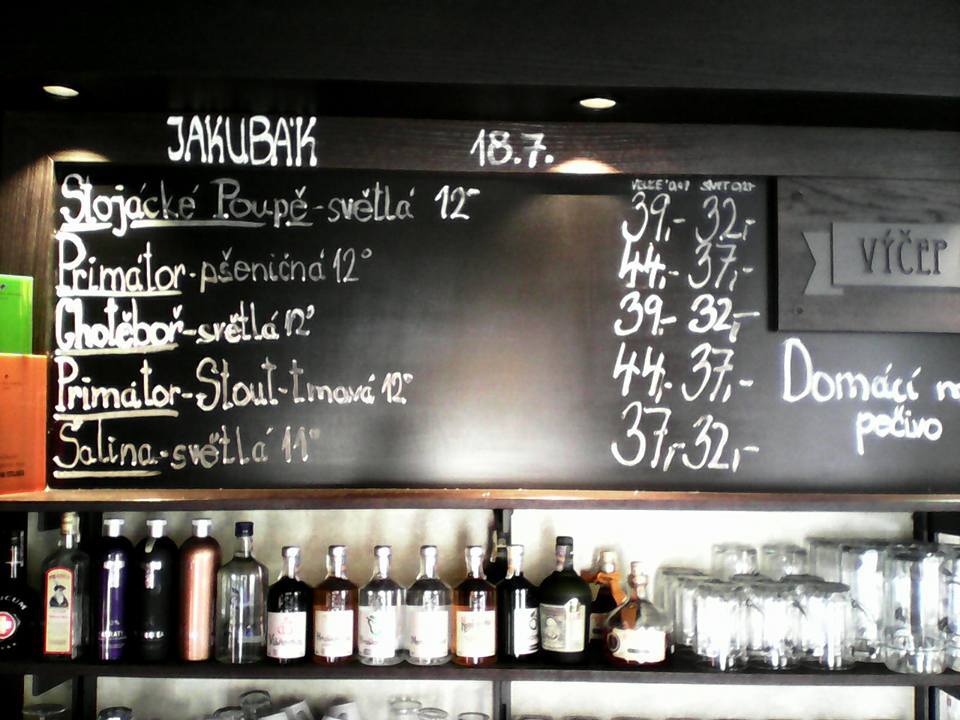 JAKUBÁK 18.7.
Stojácké Poupě-světlá 12° 39,- 32,-
Primátor-pšeničná 12° 44,- 37,-
Chotěboř-světlá 12° 39,- 32,-
Primátor-Stout-tmavá 12° 44,- 37,-
Šalina-světlá 11° 37,- 32,-
VÝČEP
Domácí
pečivo